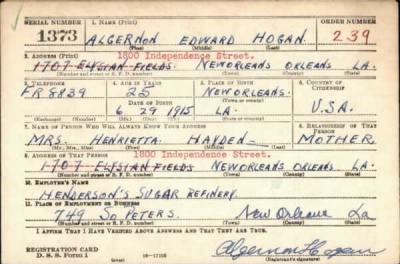 SERIAL NUMBER 1. NAME (Print) ORDER NUMBER
1373 ALGERNON EDWARD HOGAN. 239
(First) (Middle) (Last)
2. ADDRESS (Print) 1800 Independence Street.
1707 ELYSIAN FIELDS. NEW ORLEANS ORLEANS LA.
(Number and street or R. F. D. number) (Town) (County) (State)
3. TELEPHONE 4. AGE IN YEARS 5. PLACE OF BIRTH 6. COUNTRY OF CITIZENSHIP
FR 8839 25 NEW ORLEANS.
DATE OF BIRTH (Town or county)
6 29 1915 LA. U.S.A.
(Exchange) (Number) (Mo.) (Day) (Yr.) (State or country)
7. NAME OF PERSON WHO WILL ALWAYS KNOW YOUR ADDRESS 8. RELATIONSHIP OF THAT PERSON
MRS. HENRIETTA HAYDEN MOTHER.
(Mr., Mrs., Miss) (First) (Middle) (Last)
9. ADDRESS OF THAT PERSON 1800 Independence Street.
1707 ELYSIAN FIELDS NEW ORLEANS ORLEANS LA.
(Number and street or R. F. D. number) (Town) (County) (State)
10. EMPLOYER'S NAME
HENDERSON'S SUGAR REFINERY.
11. PLACE OF EMPLOYMENT OR BUSINESS
749 SO PETERS. New Orleans La
(Number and street or R. F. D. number) (Town) (County) (State)
I AFFIRM THAT I HAVE VERIFIED ABOVE ANSWERS AND THAT THEY ARE TRUE.
REGISTRATION CARD
D. S. S. Form 1 Algernon Hogan
(Registrant's signature)